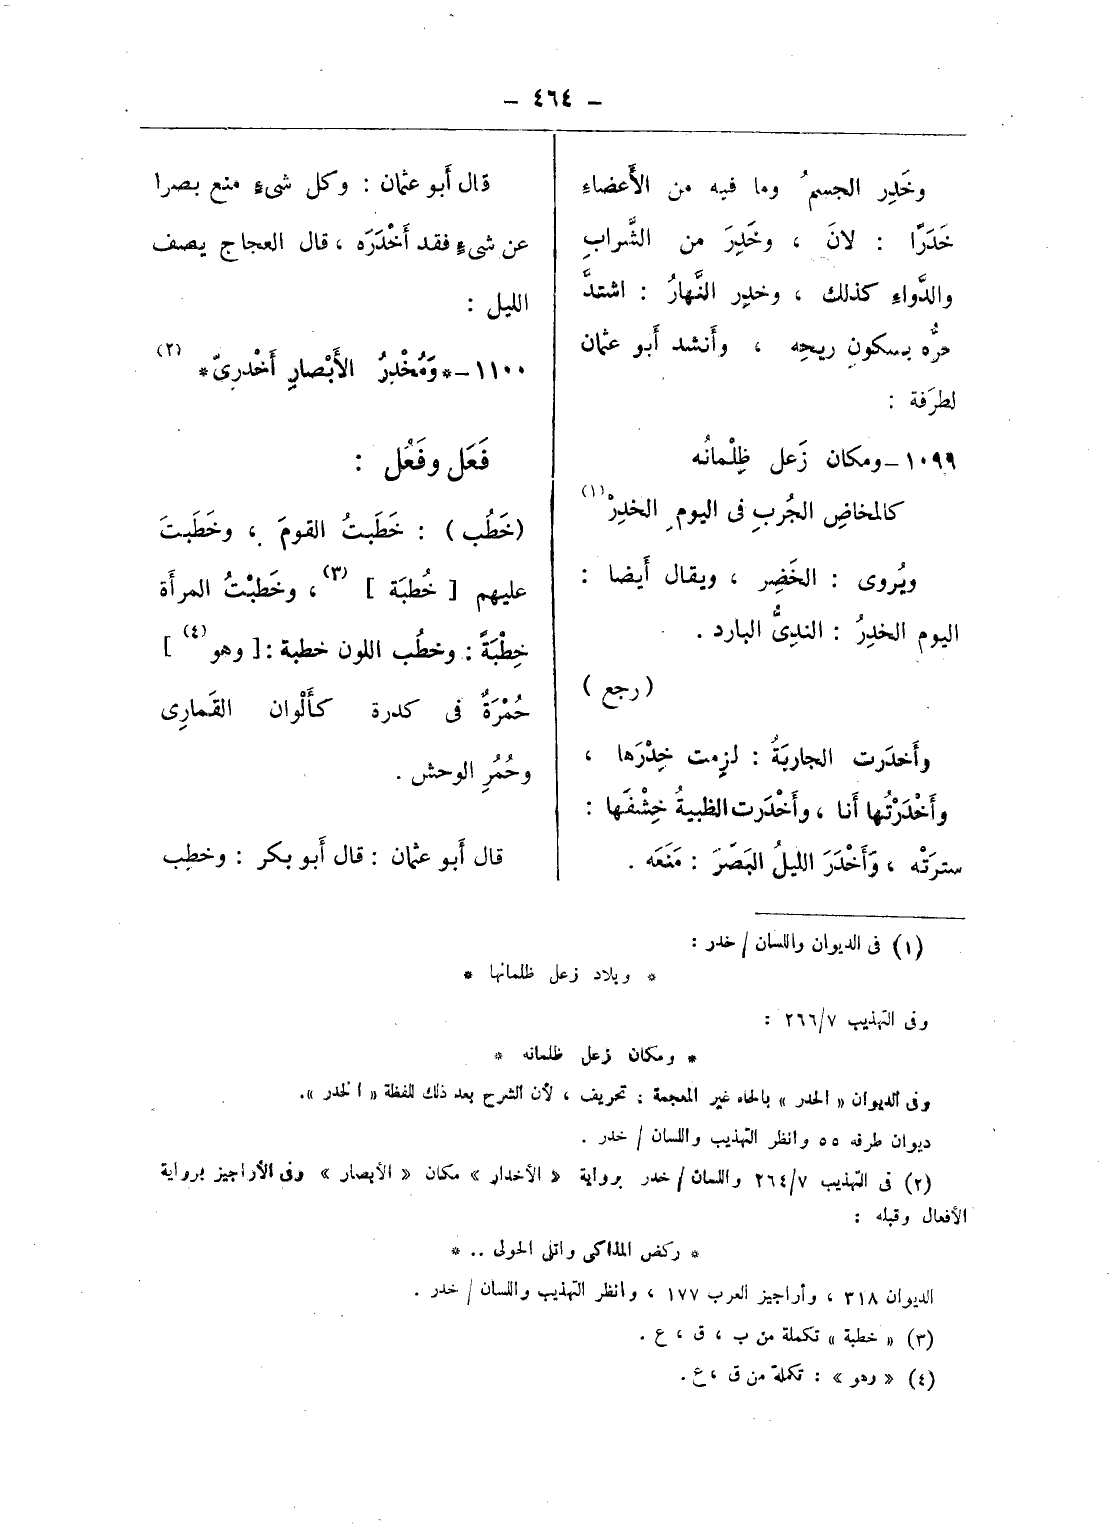 – ٤٦٤ –
وخَدِر الجسمُ وما فيه من الأَعضاءِ
خَدَرًا : لانَ ، وخَدِرَ من الشَّرابِ
والدَّواءِ كذلك ، وخدِر النَّهارُ : اشتدَّ
حرُّه بسكونِ ريحِه ، وأَنشد أَبو عثمان
لطرَفة :
١٠٩٩ – ومكان زَعل ظِلْمانُه
كالمخاضِ الجُربِ فى اليومِ الخدِرْ (١)
ويُروى : الخَضِر ، ويقال أَيضا :
اليوم الخدِرُ : النديُّ البارد .
( رجع )
وأَخدَرت الجاريَةُ : لزِمت خِدْرَها ،
وأَخْدَرْتُها أَنا ، وأَخْدَرت الظبيةُ خِشْفَها :
سترَتْه ، وَأَخْدَرَ الليلُ البَصَرَ : مَنَعَه .
قال أَبو عثمان : وكل شىءٍ منع بصرا
عن شىءٍ فقد أَخْدَرَه ، قال العجاج يصف
الليل :
١١٠٠ – * وَمُخْدِرُ الأَبْصارِ أَخْدرىّ * (٢)
فَعَل وفَعُل :
(خَطُب ) : خَطَبتُ القومَ ، وخَطَبتَ
عليهم [ خُطبَة ] (٣) ، وخَطبْتُ المرأَة
خِطْبَةً : وخطُب اللون خطبة : [ وهو (٤) ]
حُمْرَةٌ فى كدرة كأَلْوان القَمارِى
وحُمُرِ الوحش .
قال أَبو عثمان : قال أَبو بكر : وخطِب
(١) فى الديوان واللسان / خدر :
* وبلاد زعل ظلمانها *
وفى التهذيب ٢٦٦/٧ :
* ومكان زعل ظلمانه *
وفى الديوان « الحدر » بالحاء غير المعجمة : تحريف ، لأن الشرح بعد ذلك للفظة « الخدر ».
ديوان طرفه ٥٥ وانظر التهذيب واللسان / خدر .
(٢) فى التهذيب ٢٦٤/٧ واللسان / خدر برواية « الأخدار » مكان « الأبصار » وفى الأراجيز برواية
الأفعال وقبله :
* ركض المذاكى واتلى الحولى .. *
الديوان ٣١٨ ، وأراجيز العرب ١٧٧ ، وانظر التهذيب واللسان / خدر .
(٣) « خطبة » تكملة من ب ، ق ، ع .
(٤) « وهو » : تكملة من ق ، ع .